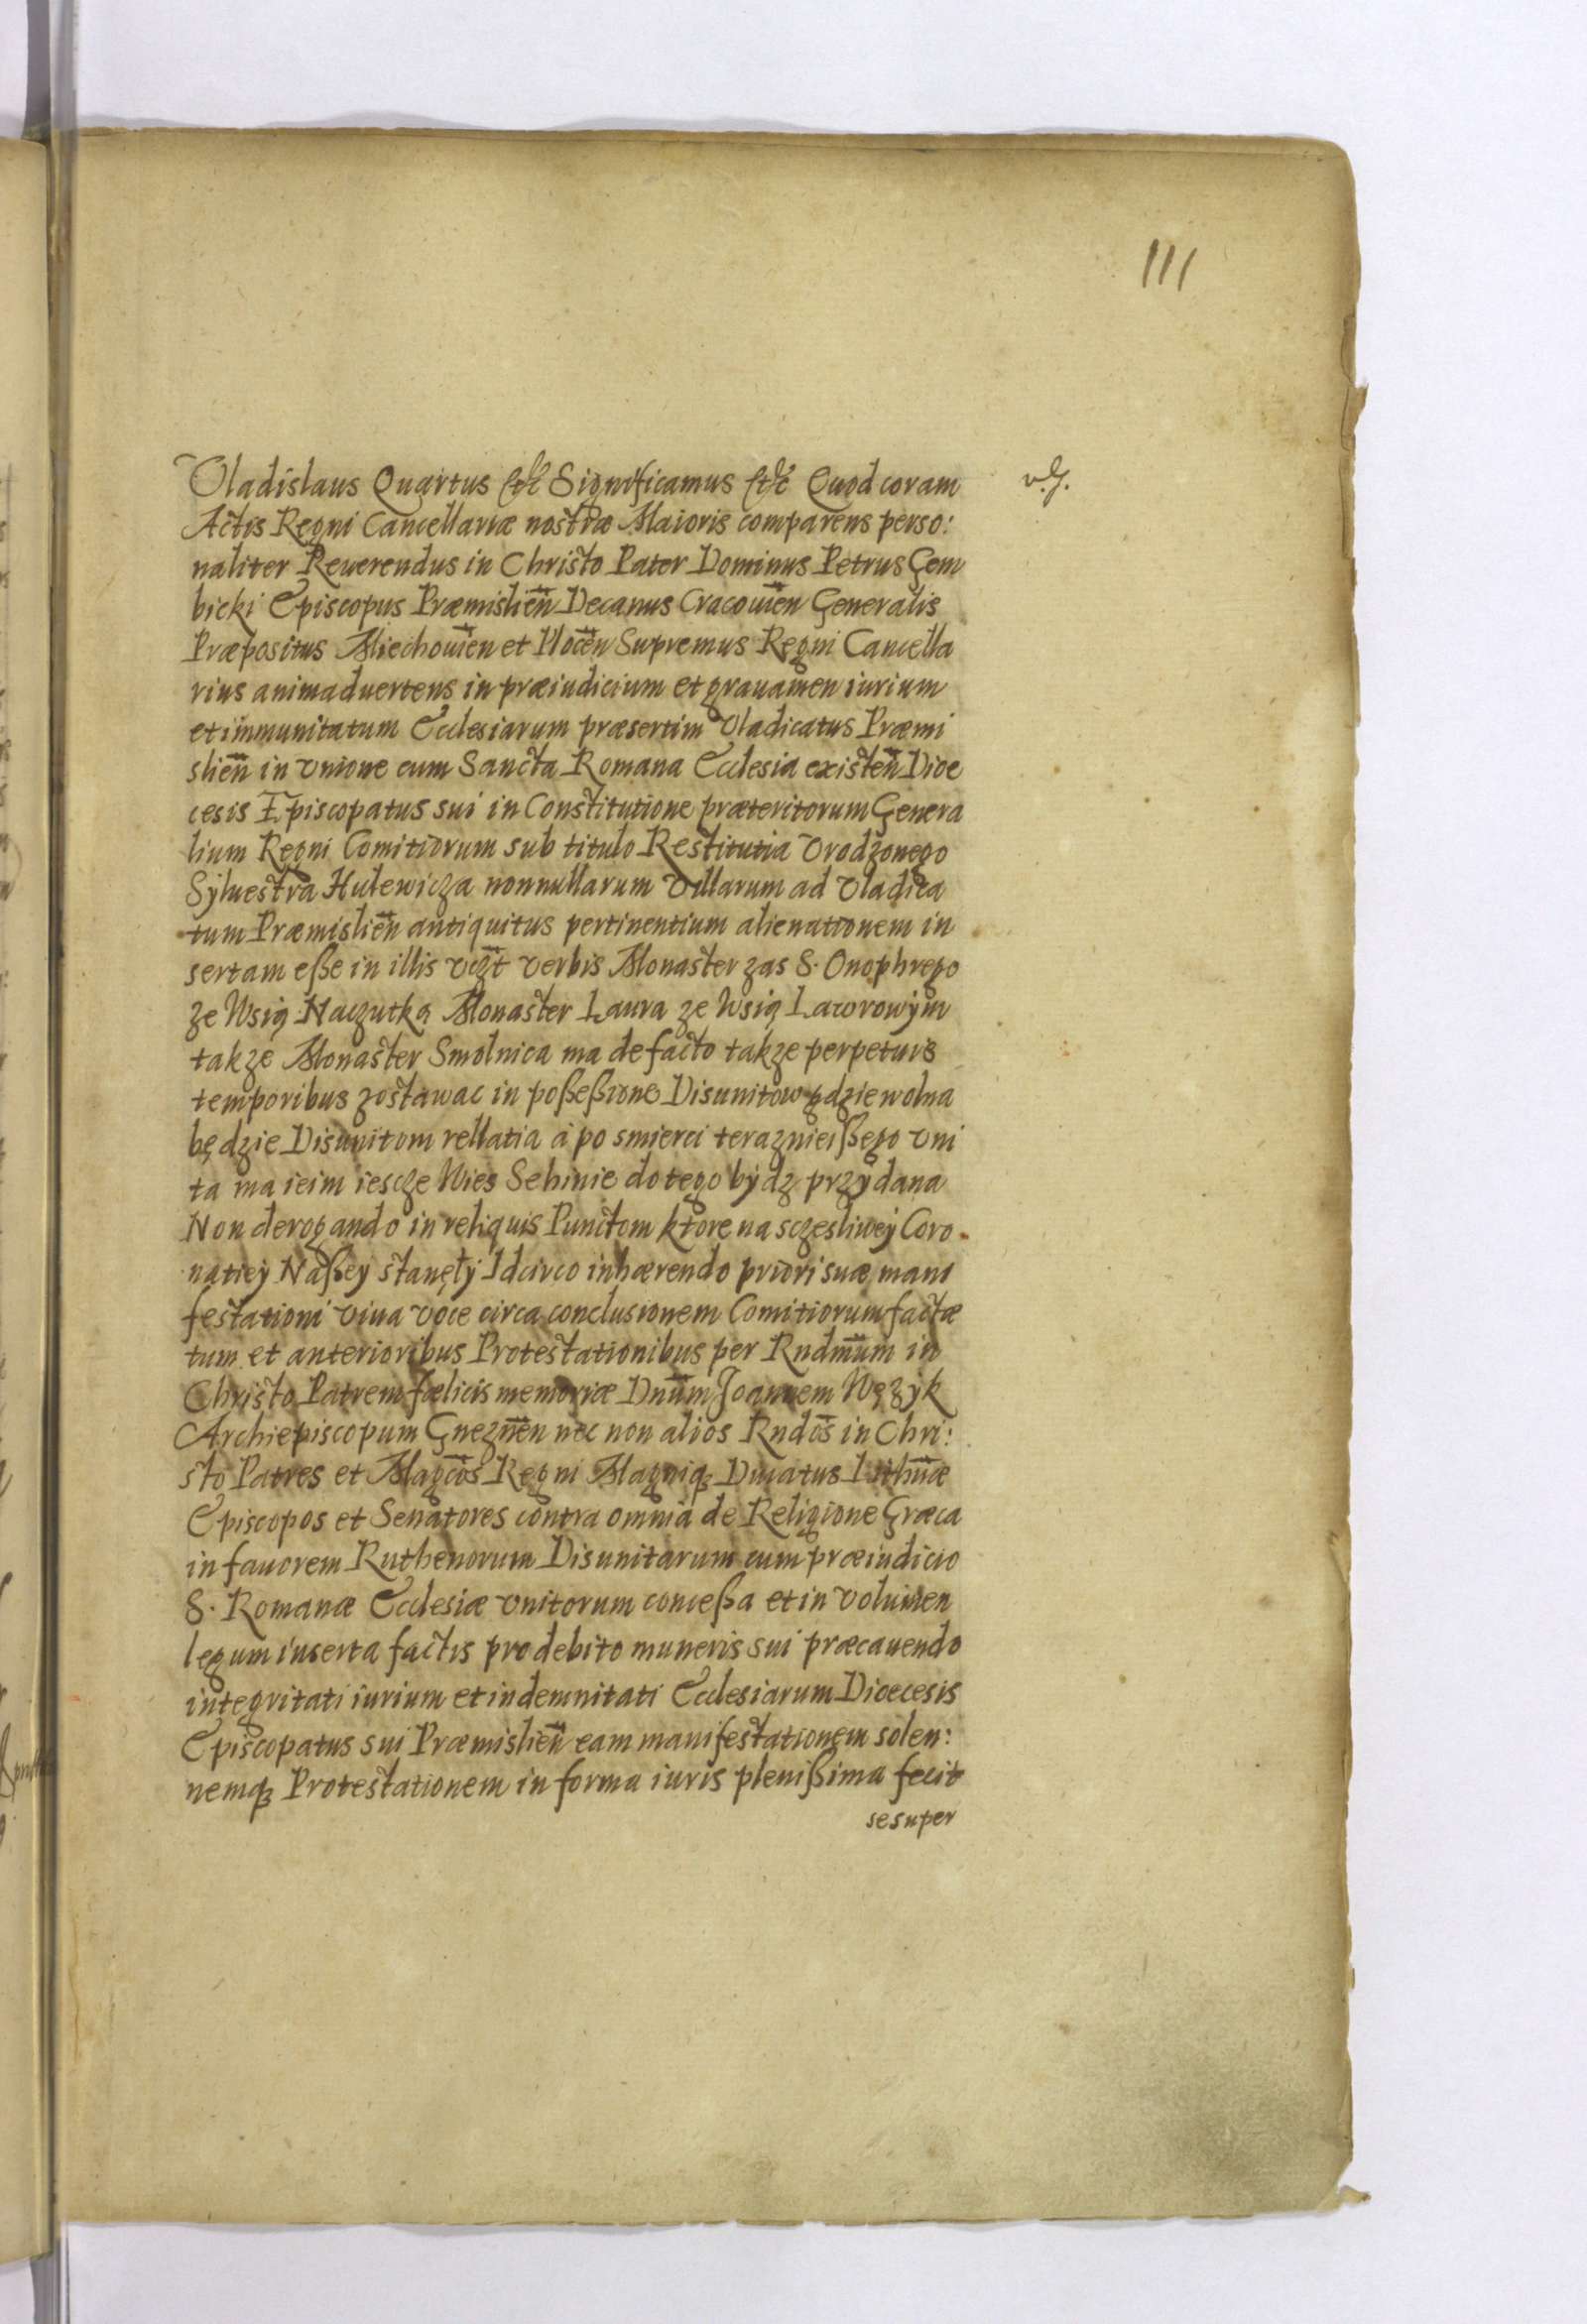 111
Vladislaus Quartus etc Significamus etc Quod coram
Actis Regni Cancellariæ nostræ Maioris comparens perso:
naliter Reuerendus in Christo Pater Dominus Petrus Gem
bicki Episcopus Præmislien̄ Decanus Cracouien̄ Generalis
Præpositus Miechouien̄ et Plocen̄ Supremus Regni Cancella
rius animaduertens in præiudicium et grauamen iurium
et immunitatum Ecclesiarum præsertim Vladicatus Præmi
slien̄ in vnione cum Sancta Romana Ecclesia existen̄ Dioe
cesis Episcopatus sui in Constitutione præteritorum Genera
lium Regni Comitiorum sub titulo Restitutia Vrodzonego
Sylvestra Hulewicza nonnullarum Villarum ad Vladica
tum Præmislien̄ antiquitus pertinentium alienationem in
sertam eße in illis vczt̄ verbis Monaster zas S. Onophrego
ze Wsią Naczutką Monaster Laura ze Wsią Lawrowÿm
takze Monaster Smolnica ma de facto takze perpetuis
temporibus zostawac in poßeßione Disunitow gdzie wolna
będzie Disunitom rellatia à po smierci teraznieißego vni
ta ma ieim iescze Wies Sehinie do tego bÿdz przÿdana
Non derogando in reliquis Punctom ktore na sczesliweÿ Coro
natieÿ Naßeÿ stanęłÿ Idcirco inhærendo priori suæ mani
festationi viua voce circa conclusionem Comitiorum factæ
tum et anterioribus Protestationibus per Rndmūm in
Christo Patrem fœlicis memoriæ Dnūm Joannem Wężÿk
Archiepiscopum Gneznen̄ nec non alios Rndōs in Chri:
sto Patres et Magcōs Regni Magniq; Ducatus Lithn̄iæ
Episcopos et Senatores contra omnia de Religione Græca
in fauorem Ruthenorum Disunitarum cum præiudicio
S. Romanæ Ecclesiæ vnitorum conceßa et in Volumen
legum inserta factis pro debito muneris sui præcauendo
integritati iurium et indemnitati Ecclesiarum Dioecesis
Episcopatus sui Præmislien̄ eam manifestationem solen:
nemq; Protestationem in forma iuris plenißima fecit
se super